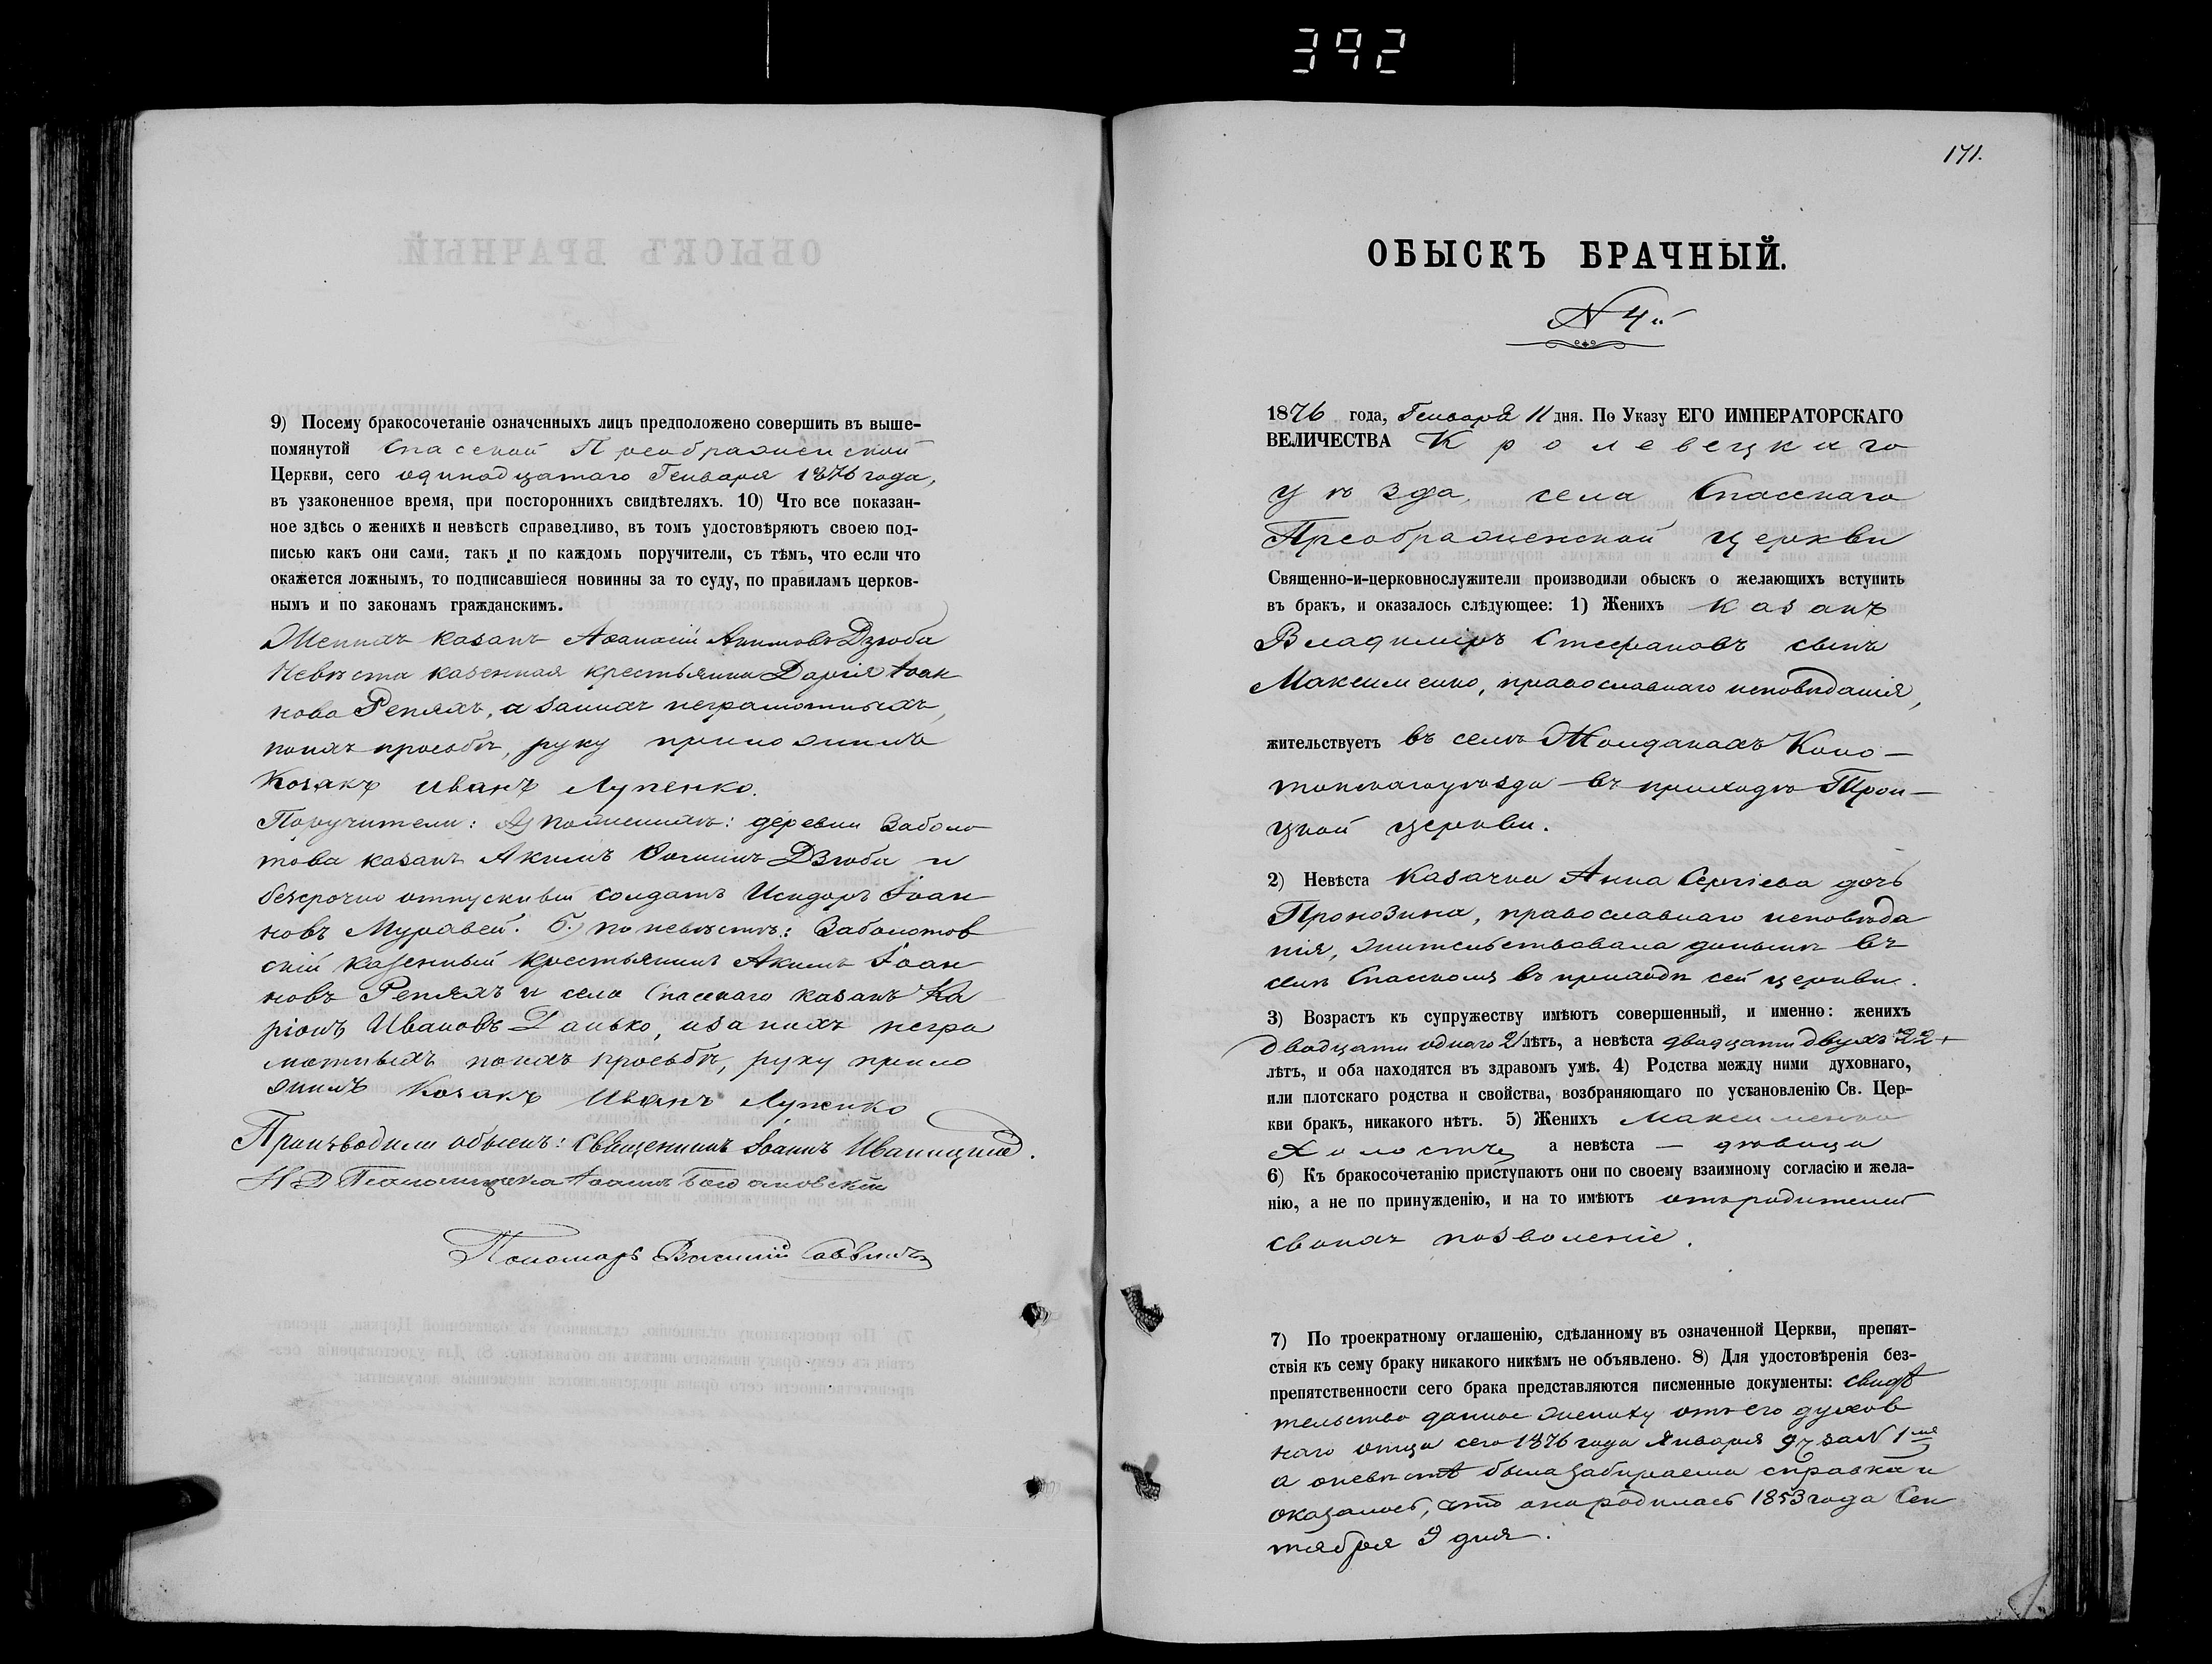 392
9) Посему бракосочетаніе означенныхъ лицъ предположено совершить въ выше-
помянутой Спасской Преображенской
Церкви, сего одинадцатаго Генваря 1876 года,
въ узаконенное время, при постороннихъ свидѣтеляхъ. 10) Что все показан-
ное здѣсь о женихѣ и невѣстѣ справедливо, въ томъ удостовѣряютъ своею под-
писью какъ они сами, такъ и по каждомъ поручители, съ тѣмъ, что если что
окажется ложнымъ, то подписавшіеся повинны за то суду, по правиламъ церков-
нымъ и по законамъ гражданскимъ.
Женихъ казакъ Аѳанасій Акимовъ Дзюба
Невѣста казенная крестьянка Дарія Іоан
нова Репяхъ, а за нихъ неграмотныхъ,
по ихъ просьбѣ, руку приложилъ
Козакъ Иванъ Лупенко.
Поручители: А) по женихѣ: деревни Заболо
това казакъ Акимъ Ѳоминъ Дзюба и
безсрочно отпускный солдатъ Исидоръ Іоан
новъ Муравей. Б.) по невѣстѣ: Заболотов
скій казенный крестьянинъ Акимъ Іоан
новъ Репяхъ и села Спасскаго казакъ Ка
ріонъ Ивановъ Данько, и за нихъ негра
мотныхъ по ихъ просьбѣ, руку прило
жилъ Козакъ Иванъ Лупенко
Производили обыскъ: Священникъ Іоаннъ Иваницкій.
И Д Псаломщика Іоаннъ Богдановскій
Пономарь Василій Саввичъ
171.
ОБЫСКЪ БРАЧНЫЙ.
N 4й
1876 года, Генваря 11 дня. По Указу ЕГО ИМПЕРАТОРСКАГО
ВЕЛИЧЕСТВА Кролевецкаго
уѣзда, села Спасскаго
Преображенской церкви
Священно-и-церковнослужители производили обыскъ о желающихъ вступить
въ бракъ, и оказалось слѣдующее: 1) Женихъ казакъ
Владиміръ Стефановъ сынъ
Максименко, православнаго исповѣданія,
жительствуетъ въ селѣ Жолдакахъ Коно-
топскаго уѣзда въ приходѣ Трои-
цкой церкви.
2) Невѣста Казачка Анна Сергіева дочь
Пронозина, православнаго исповѣда
нія, жительствовала донынѣ въ
селѣ Спасскомъ въ приходѣ сей церкви.
3) Возрастъ къ супружеству имѣютъ совершенный, и именно: женихъ
двадцати одного 21 лѣтъ, а невѣста двадцати двухъ 22
лѣтъ, и оба находятся въ здравомъ умѣ. 4) Родства между ними духовнаго,
или плотскаго родства и свойства, возбраняющаго по установленію Св. Цер-
кви бракъ, никакого нѣтъ. 5) Женихъ Максименко
Холостъ, а невѣста — дѣвица
6) Къ бракосочетанію приступаютъ они по своему взаимному согласію и жела-
нію, а не по принужденію, и на то имѣютъ отъ родителей
своихъ позволеніе.
7) По троекратному оглашенію, сдѣланному въ означенной Церкви, препят-
ствія къ сему браку никакого никѣмъ не объявлено. 8) Для удостовѣренія без-
препятственности сего брака представляются писменные документы: свидѣ
тельство данное жениху отъ его духов
наго отца сего 1876 года Января 9 ч за N 1мъ
а о невѣстѣ была забираема справка и
оказалось, что она родилась 1853 года Сен
тября 9 дня.